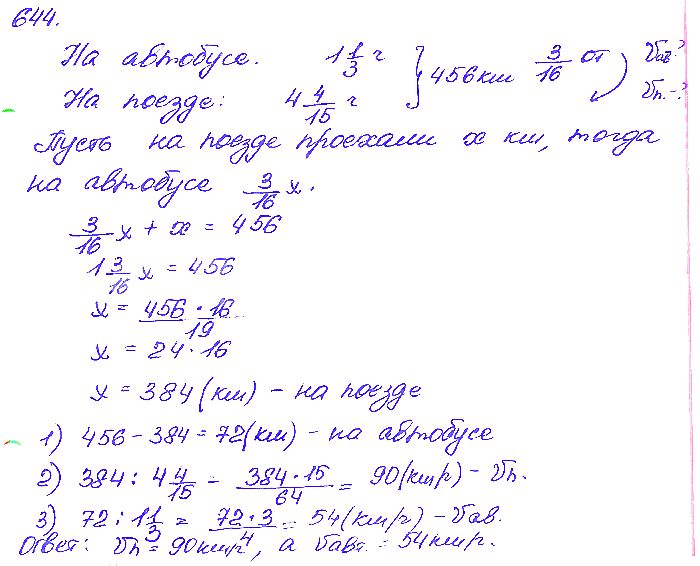 644.
На автобусе. 1 1/3 ч } 456 км 3/16 от Vав-?
На поезде: 4 4/15 ч Vп.-?
Пусть на поезде проехали x км, тогда
на автобусе 3/16 x.
3/16 x + x = 456
1 3/16 x = 456
x = 456 · 16 / 19
x = 24 · 16
x = 384 (км) - на поезде
1) 456 - 384 = 72 (км) - на автобусе
2) 384 : 4 4/15 = 384 · 15 / 64 = 90 (км/ч) - Vп.
3) 72 : 1 1/3 = 72 · 3 / 4 = 54 (км/ч) - Vав.
Ответ: Vп = 90 км/ч, а Vавт. = 54 км/ч.